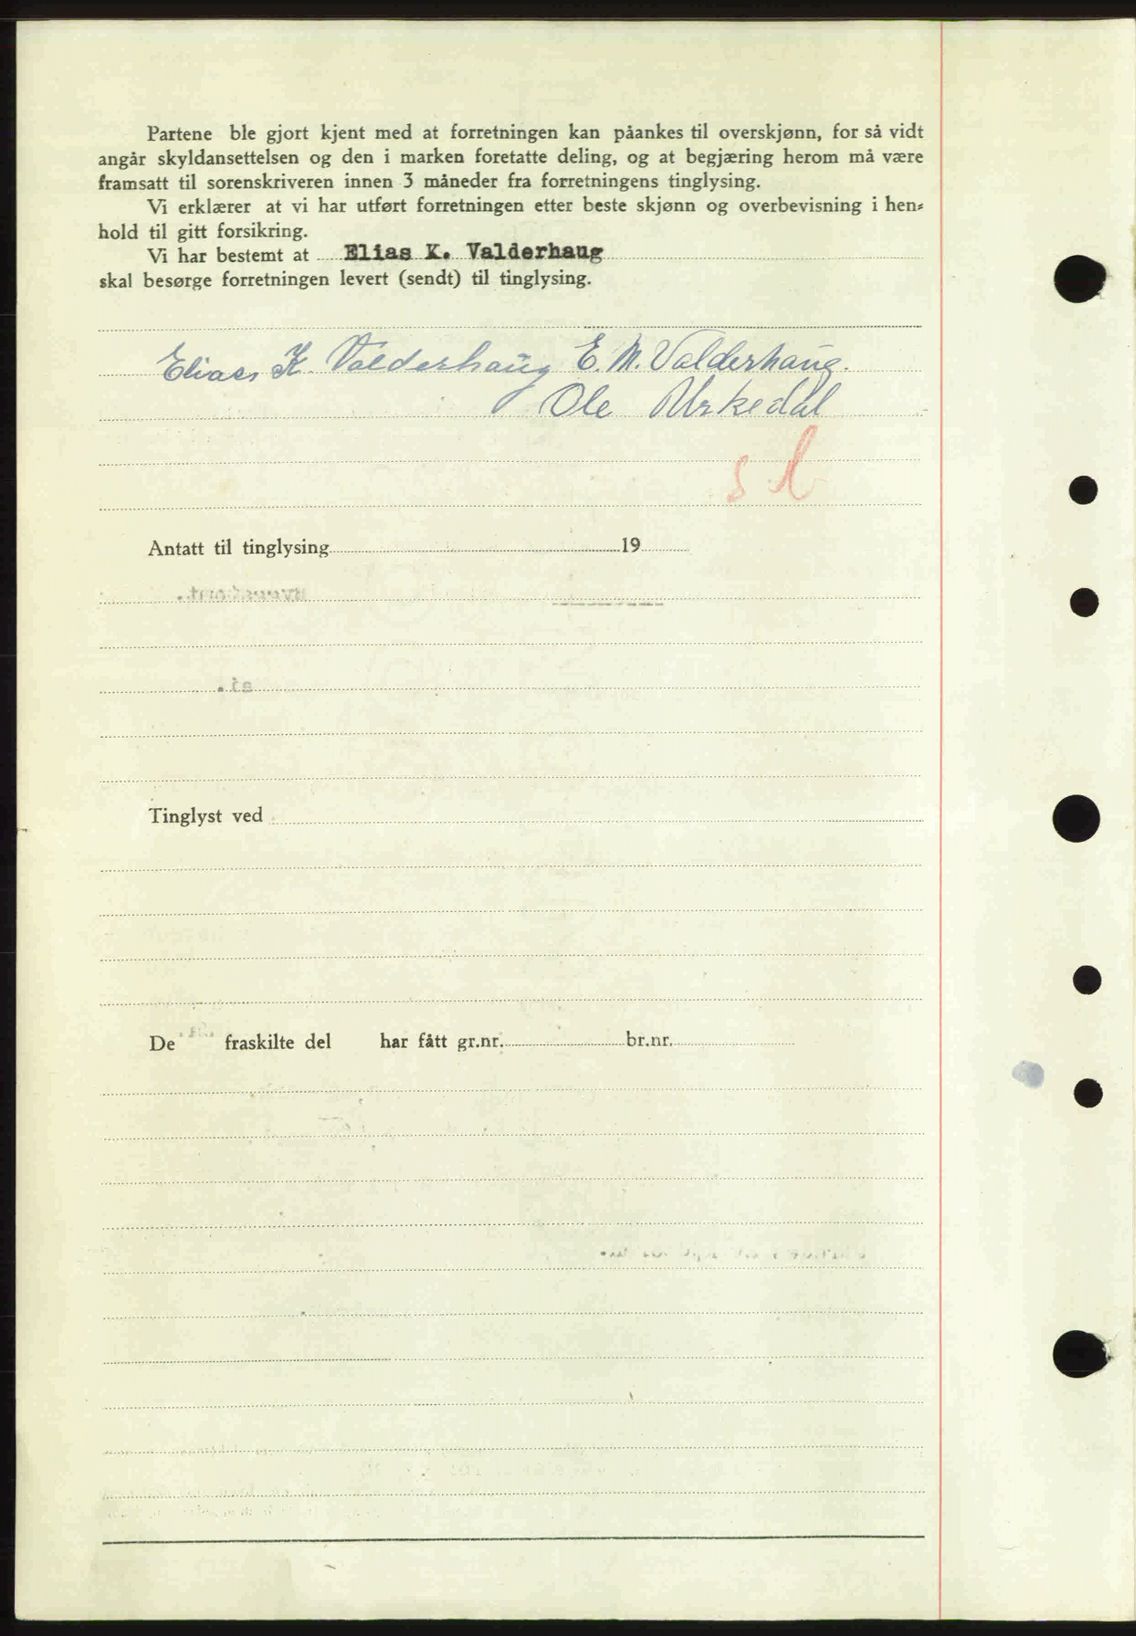 Partene ble gjort kjent med at forretningen kan påankes til overskjønn, for så vidt
angår skyldansettelsen og den i marken foretatte deling, og at begjæring herom må være
framsatt til sorenskriveren innen 3 måneder fra forretningens tinglysing.
Vi erklærer at vi har utført forretningen etter beste skjønn og overbevisning i hen-
hold til gitt forsikring.
Vi har bestemt at Elias K. Valderhaug
skal besørge forretningen levert (sendt) til tinglysing.
Elias K. Valderhaug E. M. Valderhaug.
Ole Urkedal
Antatt til tinglysing 19
Tinglyst ved
De fraskilte del har fått gr.nr. br.nr.